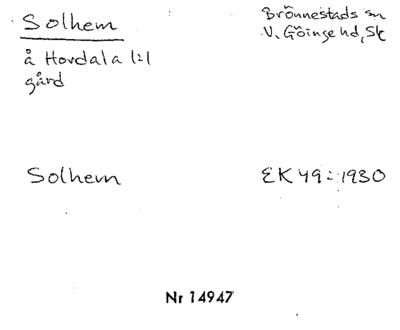 Solhem
Brönnestads sn
V. Göinge hd, Sk
å Hovdala 1:1
gård
Solhem
EK 49 : 1930
Nr 14947